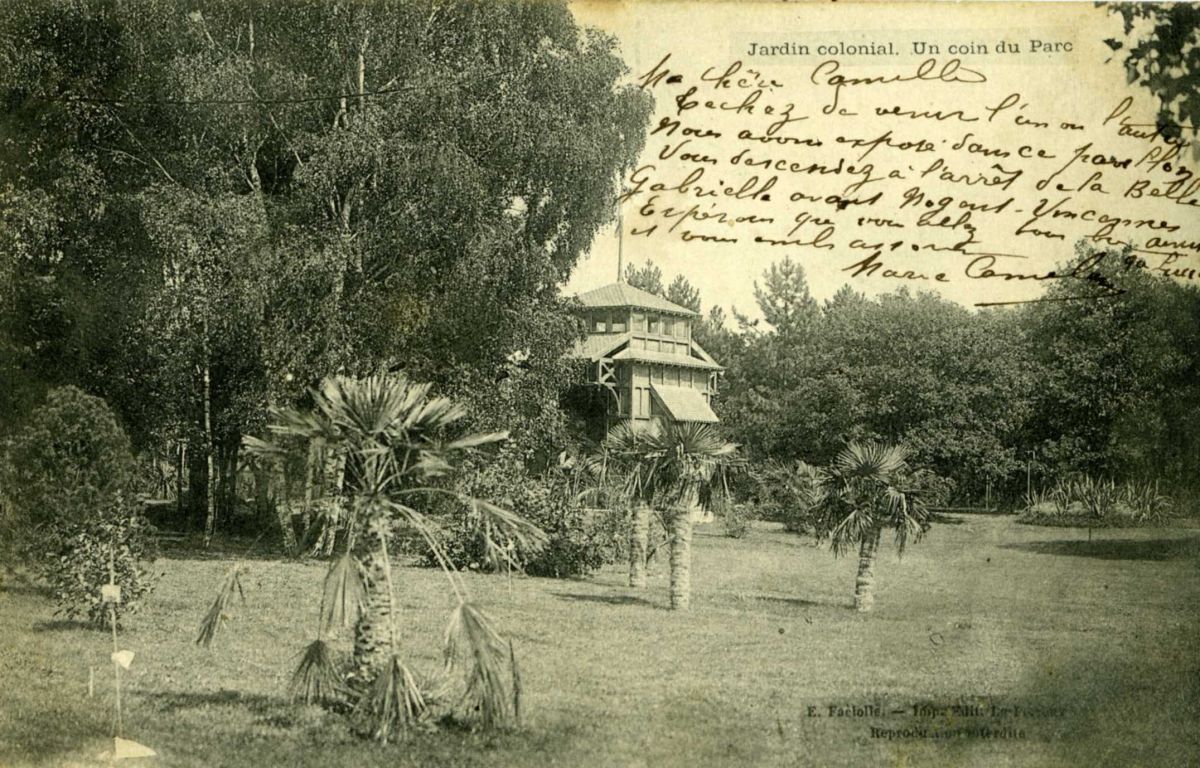 Jardin colonial. Un coin du Parc
Ma chère Camille
Tachez de venir l'un ou l'autre
Nous avons exposé dans ce parc
Vous descendez à l'arrêt de la Belle
Gabrielle avant Nogent-Vincennes
Espérons que vous allez tous bien
et vous embrassons
Marie Camille
E. Faciolle. — Imp. Edit. Le
Reproduction interdite